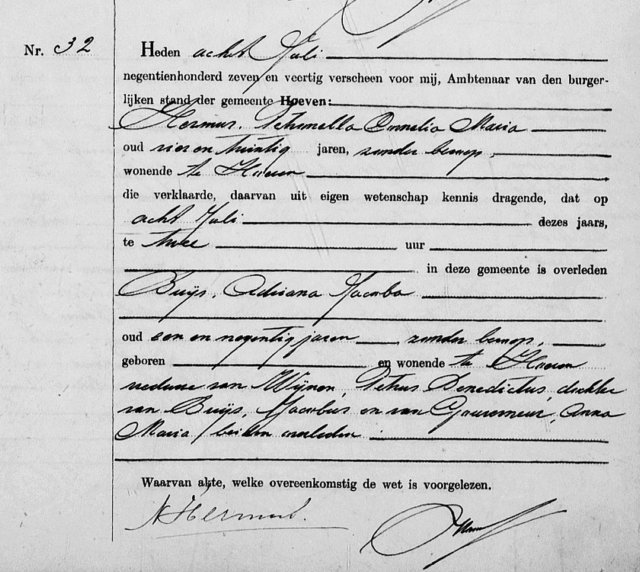 Nr. 32
Heden acht Juli
negentienhonderd zeven en veertig verscheen voor mij, Ambtenaar van den burger-
lijken stand der gemeente Hoeven:
Hermus, Petronella Cornelia Maria
oud vier en twintig jaren, zonder beroep,
wonende te Hoeven
die verklaarde, daarvan uit eigen wetenschap kennis dragende, dat op
acht Juli dezes jaars,
te twee uur
in deze gemeente is overleden
Buijs, Adriana Jacoba
oud een en negentig jaren zonder beroep,
geboren en wonende te Hoeven
weduwe van Wijnen, Petrus Benedictus, dochter
van Buijs, Jacobus en van Gouverneur, Anna
Maria, beiden overleden
Waarvan akte, welke overeenkomstig de wet is voorgelezen.
Hermus.